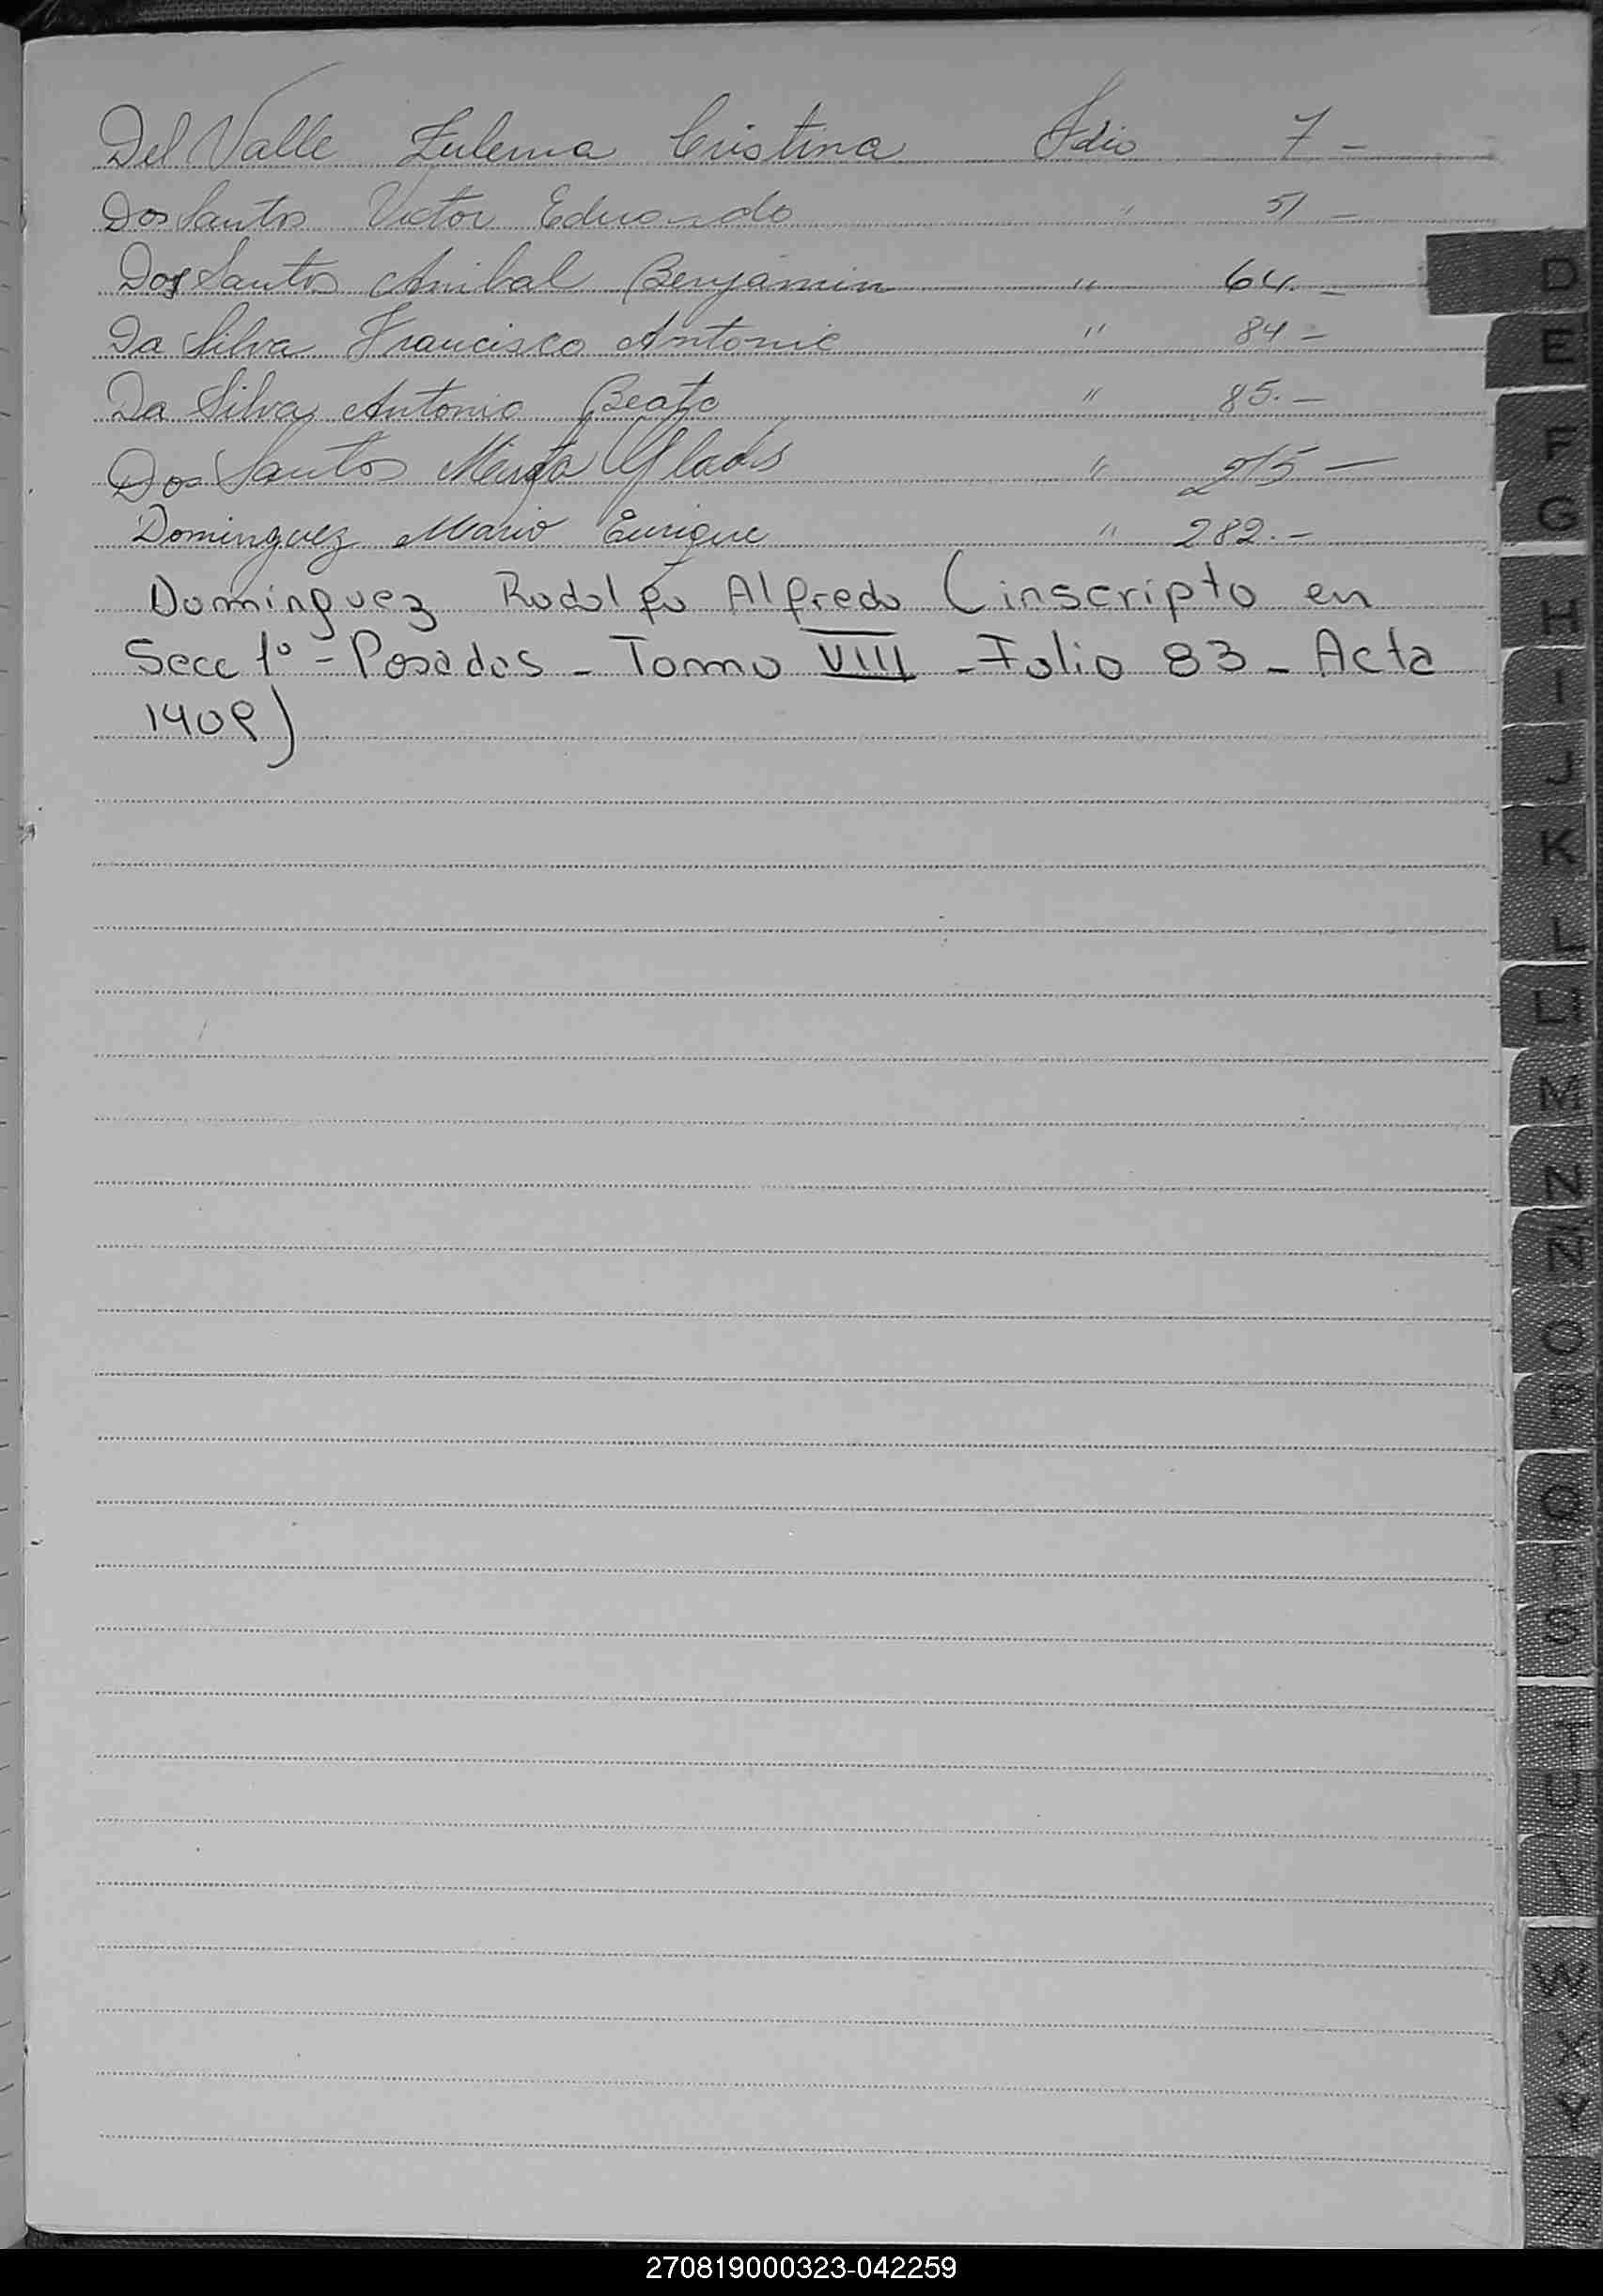 Del Valle Zulema Cristina Folio 7 -
Dos Santos Victor Eduardo " 51 -
Dos Santos Anibal Benjamin " 64. -
Da Silva Francisco Antonio " 84 -
Da Silva Antonio Beato " 85. -
Dos Santos Mirta Gladis " 215 -
Dominguez Mario Enrique " 282. -
Dominguez Rodolfo Alfredo (inscripto en
Secc 1° - Posadas - Tomo VIII - Folio 83 - Acta
1409)
D
E
F
G
H
I
J
K
L
LL
M
N
Ñ
O
P
Q
R
S
T
U
V
W
X
Y
Z
270819000323-042259